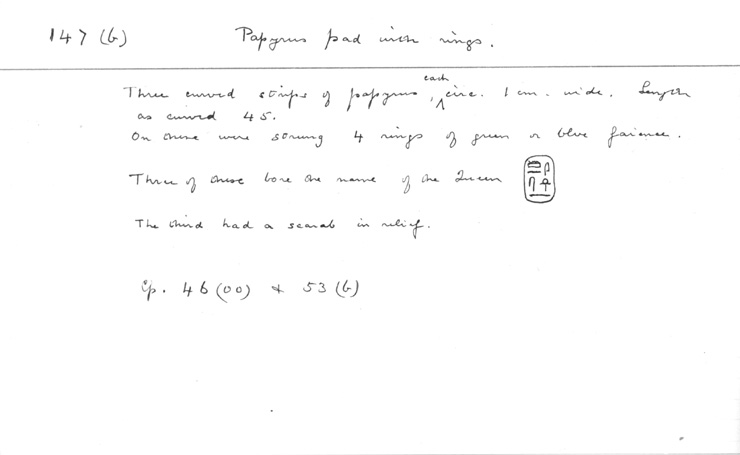 147 (b) Papyrus pad with rings.
Three curved strips of papyrus, each circ. 1 cm. wide. Length
as curved 45.
On these were strung 4 rings of green or blue faience.
Three of these bore the name of the Queen
The third had a scarab in relief.
Cp. 46 (oo) & 53 (b)